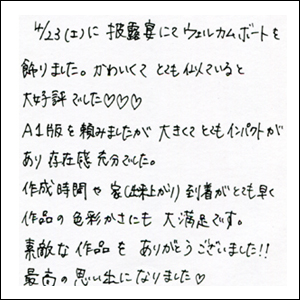 4/23(土)に 披露宴にて ウェルカムボードを
飾りました。かわいくて とても似ていると
大好評でした♡♡♡
A1版を頼みましたが 大きくて とてもインパクトが
あり 存在感 充分でした。
作成時間や 家(出来上がり)到着がとても早く
作品の 色彩かさにも 大満足です。
素敵な作品を ありがとうございました!!
最高の思い出になりました♡